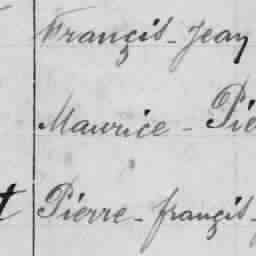 Françis-Jean
Maurice-Pie
t Pierre-françis-